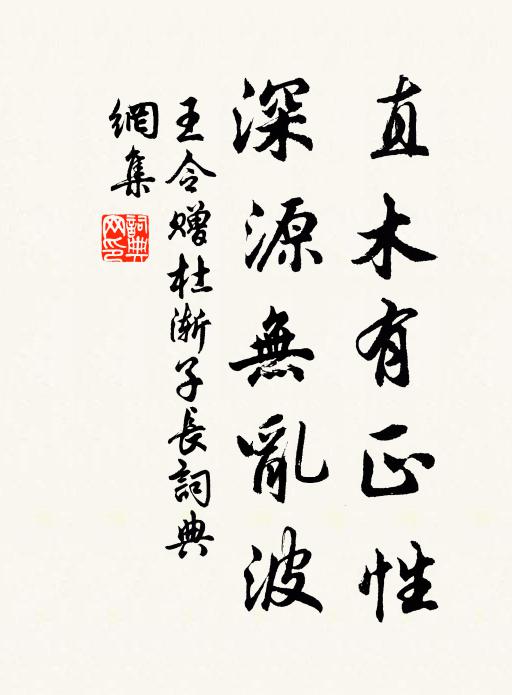 直木有正性
深源無亂波
王令贈杜漸子長詞典
網集
詞典網印